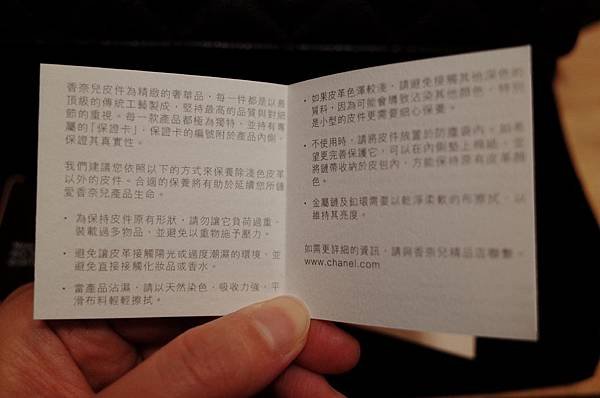 香奈兒皮件為精緻的奢華品，每一件都是以最
頂級的傳統工藝製成，堅持最高的品質與對細
節的重視。每一款產品都極為獨特，並持有專
屬的「保證卡」，保證卡的編號附於產品內側，
保證其真實性。
我們建議您依照以下的方式來保養除淺色皮革
以外的皮件。合適的保養將有助於延續您所鍾
愛香奈兒產品生命。
• 為保持皮件原有形狀，請勿讓它負荷過重、
裝載過多物品，並避免以重物施予壓力。
• 避免讓皮革接觸陽光或過度潮濕的環境，並
避免直接接觸化妝品或香水。
• 當產品沾濕，請以天然染色、吸收力強、平
滑布料輕輕擦拭。
• 如果皮革色澤較淺，請避免接觸其他深色的
質料，因為可能會導致沾染其他顏色，特別
是小型的皮件更需要細心保養。
• 不使用時，請將皮件放置於防塵袋內。如希
望更完善保護它，可以在內側墊上棉紙，並
將鏈帶收納於皮包內，方能保持原有皮革顏
色。
• 金屬鏈及釦環需要以乾淨柔軟的布擦拭，以
維持其亮度。
如需更詳細的資訊，請與香奈兒精品店聯繫。
www.chanel.com